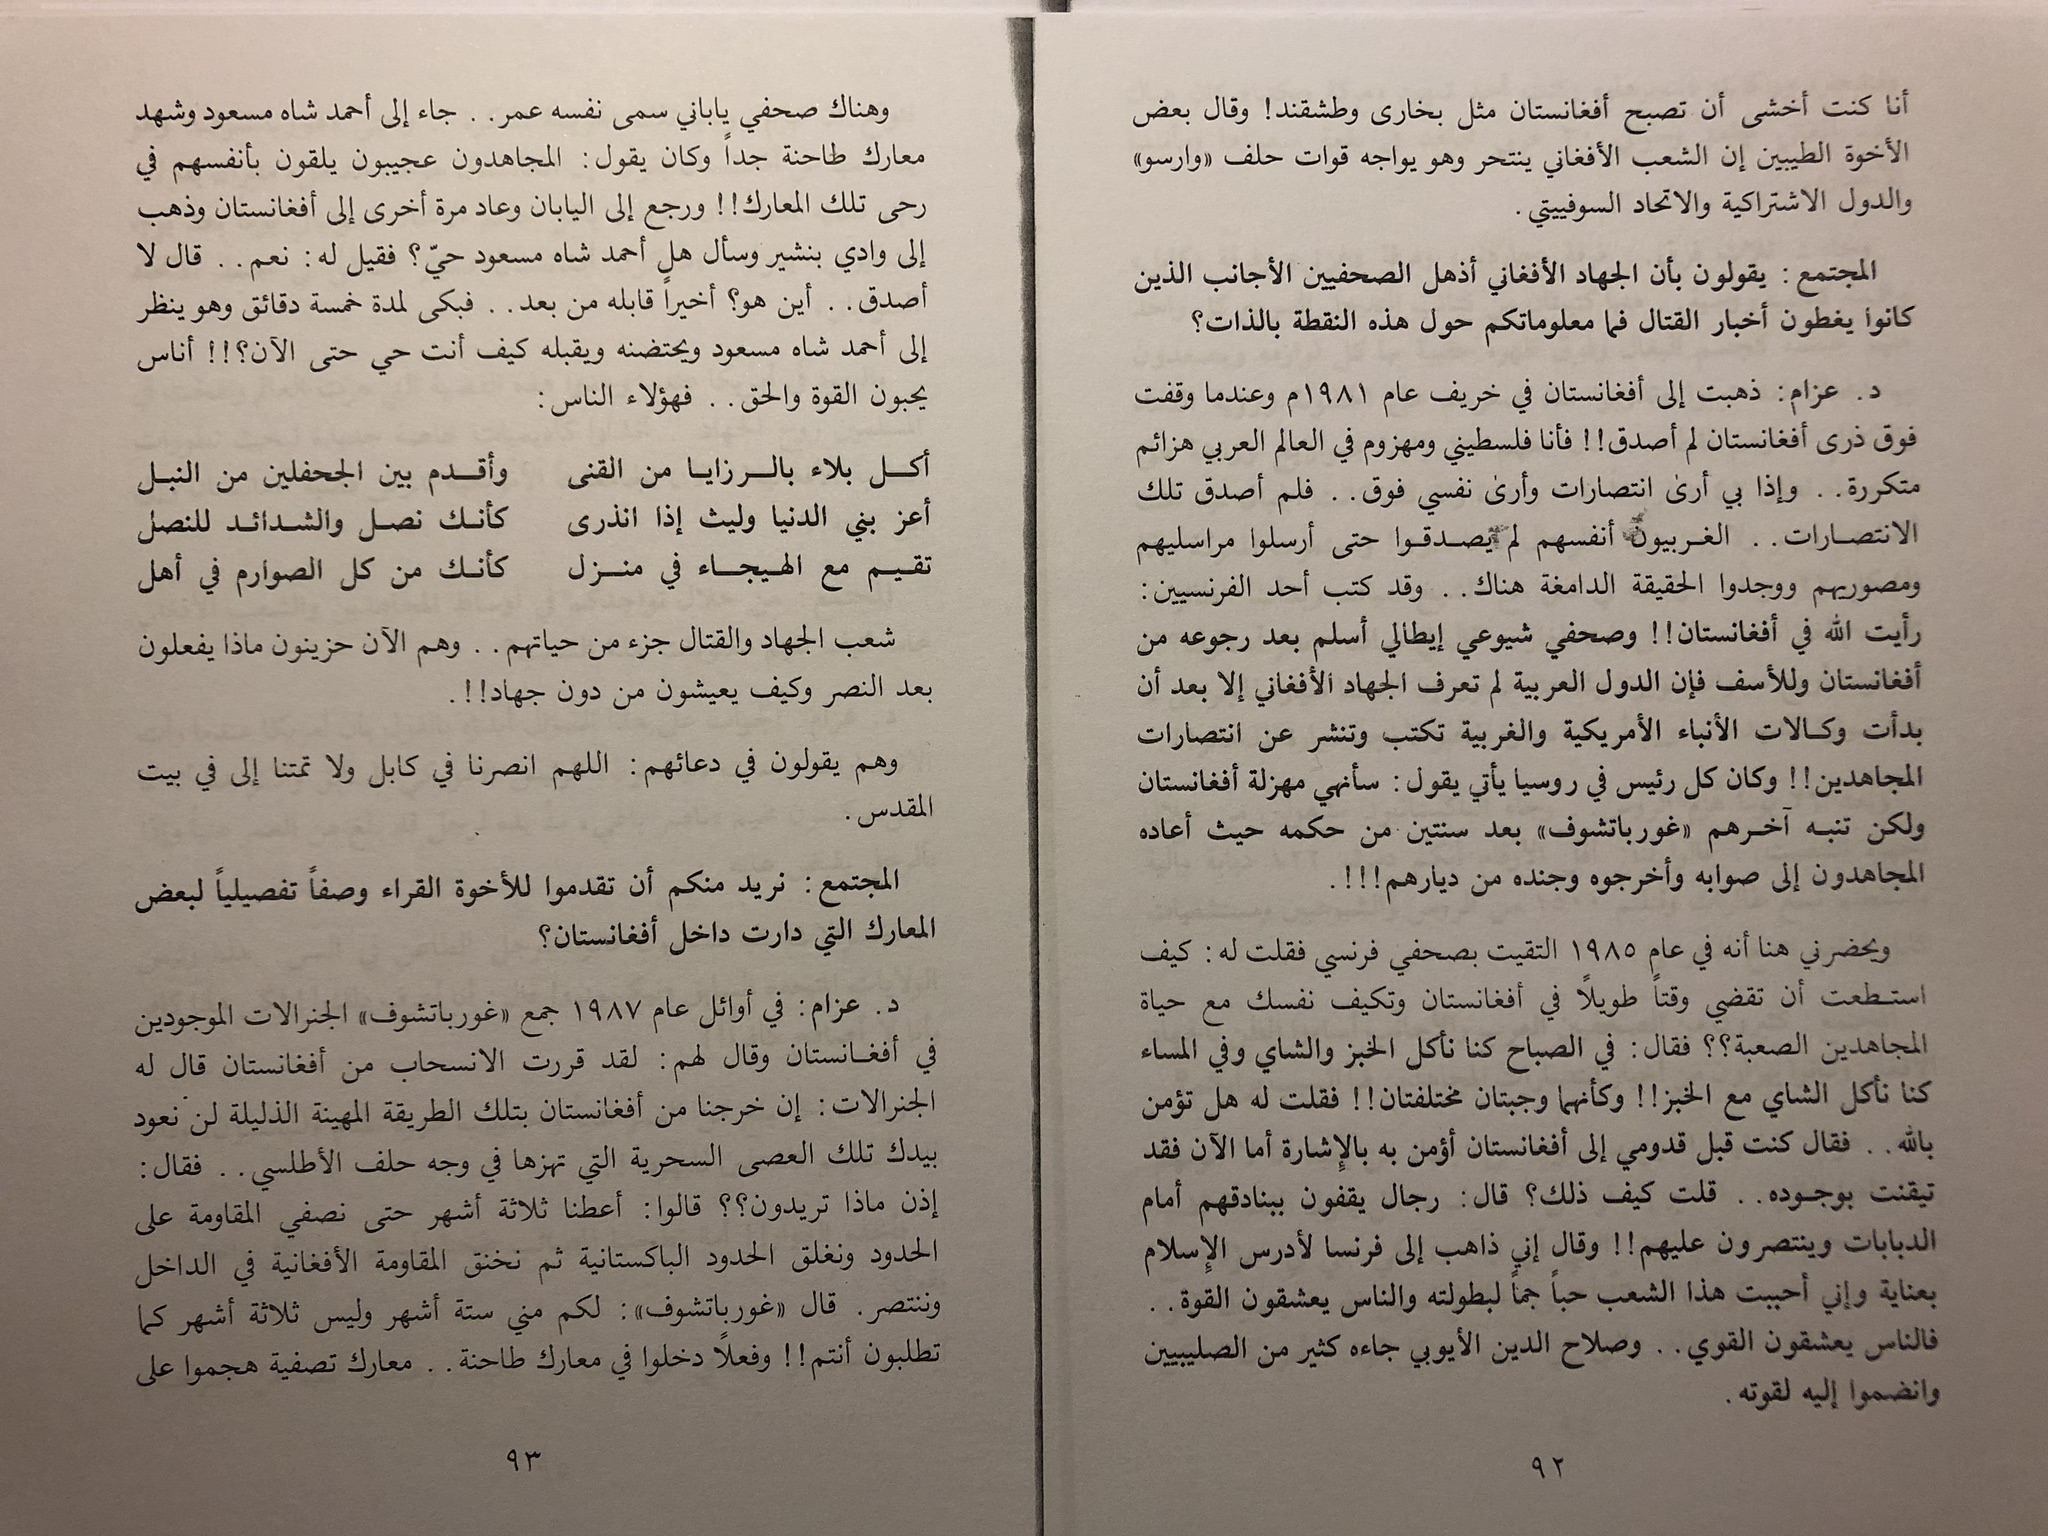 أنا كنت أخشى أن تصبح أفغانستان مثل بخارى وطشقند! وقال بعض
الأخوة الطيبين إن الشعب الأفغاني ينتحر وهو يواجه قوات حلف «وارسو»
والدول الاشتراكية والاتحاد السوفييتي.
المجتمع: يقولون بأن الجهاد الأفغاني أذهل الصحفيين الأجانب الذين
كانوا يغطون أخبار القتال فما معلوماتكم حول هذه النقطة بالذات؟
د. عزام: ذهبت إلى أفغانستان في خريف عام ١٩٨١م وعندما وقفت
فوق ذرى أفغانستان لم أصدق!! فأنا فلسطيني ومهزوم في العالم العربي هزائم
متكررة.. وإذا بي أرىٰ انتصارات وأرىٰ نفسي فوق.. فلم أصدق تلك
الانتصارات.. الغربيون أنفسهم لم يصدقوا حتى أرسلوا مراسليهم
ومصوريهم ووجدوا الحقيقة الدامغة هناك.. وقد كتب أحد الفرنسيين:
رأيت الله في أفغانستان!! وصحفي شيوعي إيطالي أسلم بعد رجوعه من
أفغانستان وللأسف فإن الدول العربية لم تعرف الجهاد الأفغاني إلا بعد أن
بدأت وكالات الأنباء الأمريكية والغربية تكتب وتنشر عن انتصارات
المجاهدين!! وكان كل رئيس في روسيا يأتي يقول: سأنهي مهزلة أفغانستان
ولكن تنبه آخرهم «غورباتشوف» بعد سنتين من حكمه حيث أعاده
المجاهدون إلى صوابه وأخرجوه وجنده من ديارهم!!!.
ويحضرني هنا أنه في عام ١٩٨٥ التقيت بصحفي فرنسي فقلت له: كيف
استطعت أن تقضي وقتاً طويلًا في أفغانستان وتكيف نفسك مع حياة
المجاهدين الصعبة؟؟ فقال: في الصباح كنا نأكل الخبز والشاي وفي المساء
كنا نأكل الشاي مع الخبز!! وكأنهما وجبتان مختلفتان!! فقلت له هل تؤمن
بالله.. فقال كنت قبل قدومي إلى أفغانستان أؤمن به بالإشارة أما الآن فقد
تيقنت بوجوده.. قلت كيف ذلك؟ قال: رجال يقفون ببنادقهم أمام
الدبابات وينتصرون عليهم!! وقال إني ذاهب إلى فرنسا لأدرس الإسلام
بعناية وإني أحببت هذا الشعب حباً جماً لبطولته والناس يعشقون القوة..
فالناس يعشقون القوي.. وصلاح الدين الأيوبي جاءه كثير من الصليبيين
وانضموا إليه لقوته.
٩٢
وهناك صحفي ياباني سمى نفسه عمر.. جاء إلى أحمد شاه مسعود وشهد
معارك طاحنة جداً وكان يقول: المجاهدون عجيبون يلقون بأنفسهم في
رحى تلك المعارك!! ورجع إلى اليابان وعاد مرة أخرى إلى أفغانستان وذهب
إلى وادي بنشير وسأل هل أحمد شاه مسعود حيّ؟ فقيل له: نعم.. قال لا
أصدق.. أين هو؟ أخيراً قابله من بعد.. فبكى لمدة خمسة دقائق وهو ينظر
إلى أحمد شاه مسعود ويحتضنه ويقبله كيف أنت حي حتى الآن؟!! أناس
يحبون القوة والحق.. فهؤلاء الناس:
أكل بلاء بالرزايا من القنى وأقدم بين الجحفلين من النبل
أعز بني الدنيا وليث إذا انذرى كأنك نصل والشدائد للنصل
تقيم مع الهيجاء في منزل كأنك من كل الصوارم في أهل
شعب الجهاد والقتال جزء من حياتهم.. وهم الآن حزينون ماذا يفعلون
بعد النصر وكيف يعيشون من دون جهاد!!.
وهم يقولون في دعائهم: اللهم انصرنا في كابل ولا تمتنا إلى في بيت
المقدس.
المجتمع: نريد منكم أن تقدموا للأخوة القراء وصفاً تفصيلياً لبعض
المعارك التي دارت داخل أفغانستان؟
د. عزام: في أوائل عام ١٩٨٧ جمع «غورباتشوف» الجنرالات الموجودين
في أفغانستان وقال لهم: لقد قررت الانسحاب من أفغانستان قال له
الجنرالات: إن خرجنا من أفغانستان بتلك الطريقة المهينة الذليلة لن نعود
بيدك تلك العصى السحرية التي تهزها في وجه حلف الأطلسي.. فقال:
إذن ماذا تريدون؟؟ قالوا: أعطنا ثلاثة أشهر حتى نصفي المقاومة على
الحدود ونغلق الحدود الباكستانية ثم نخنق المقاومة الأفغانية في الداخل
وننتصر. قال «غورباتشوف»: لكم مني ستة أشهر وليس ثلاثة أشهر كما
تطلبون أنتم!! وفعلًا دخلوا في معارك طاحنة.. معارك تصفية هجموا على
٩٣